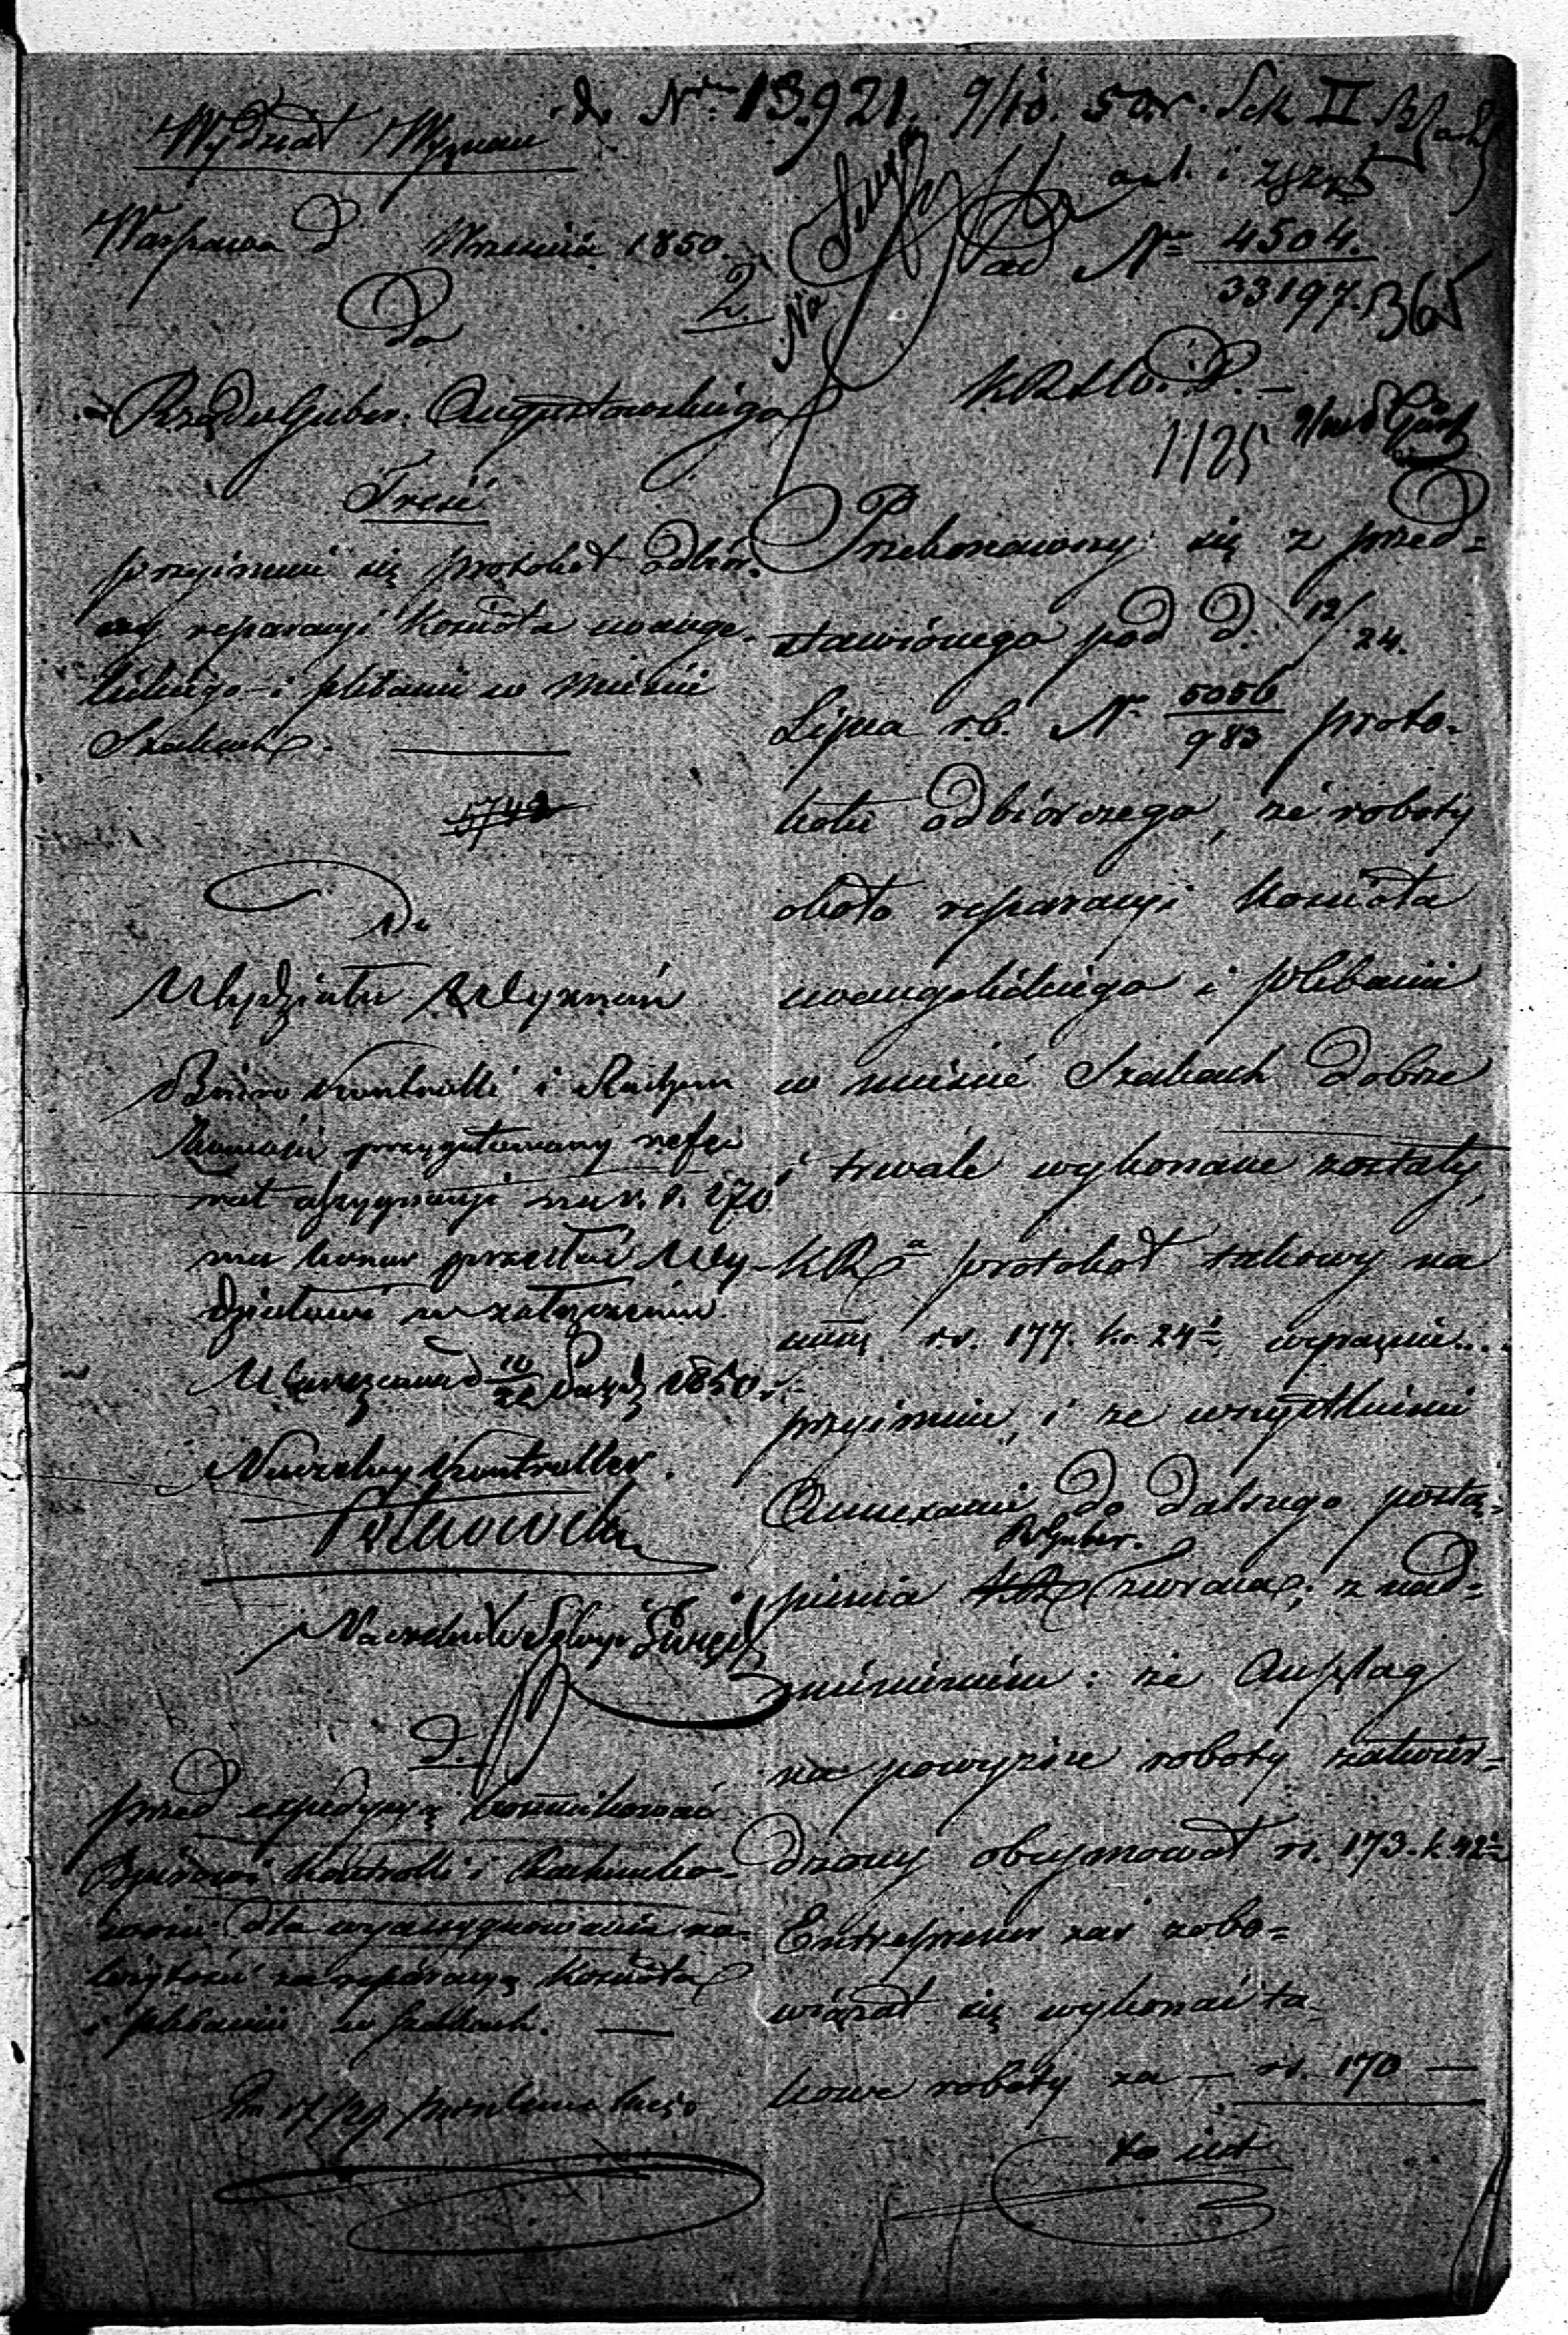 do Nru 13.921. 9/10. 50 r. Sek II
Wydział Wyznań
Warszawa d. Września 1850.
ad Nr 4504.
33197. 1365
2.
Do
Rządu Guber. Augustowskiego
KRSW. i D. —
1125
Treść
przyjmuie się protokół odbior.
czy reparacyi kościoła ewange-
lickiego i plebanii w mieście
Szakach. —
5742
Do
Wydziału Wyznań
Biuro Kontrolli i Rachun
kowości przygotowany refe
rat assygnacyi na r. s. 170
ma honor przesłać Wy-
działowi w załączeniu
Warszawa d 10/22 Paźdz 1850.
Naczelny Kontroller.
Naczelnik Sekcyi
d.
przed expedycyą kommunikować
Biurowi Kontrolli i Rachunko-
wości dla wyassygnowania na-
leżytości za reparacyą kościoła
i plebanii w Szakach. —
Przekonawszy się z przed-
stawionego pod d. 12/24.
Lipca r. b. Nr 5056/983 proto-
kółu odbiorczego, że roboty
około reparacyi kościoła
ewangelickiego i plebanii
w mieście Szakach dobrze
i trwale wykonane zostały,
KR protokół takowy na
summę r. s. 177. k. 24½ wyraźnie...
przyjmuie, i ze wszystkiemi
Annexami do dalszego postą-
R Guber.
pienia KR zwraca; z nad-
mienieniem: że Anszlag
na powyższe roboty zatwier-
dzony obejmował rs. 173. k. 42½
Entrepreneur zaś zobo-
wiązał się wykonać ta-
kowe roboty za — rs. 170 —
to iest